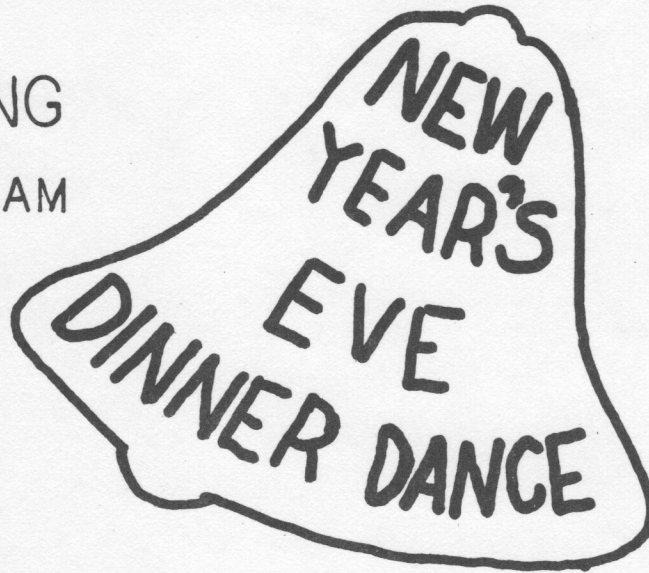 NG
AM
NEW
YEAR'S
EVE
DINNER DANCE